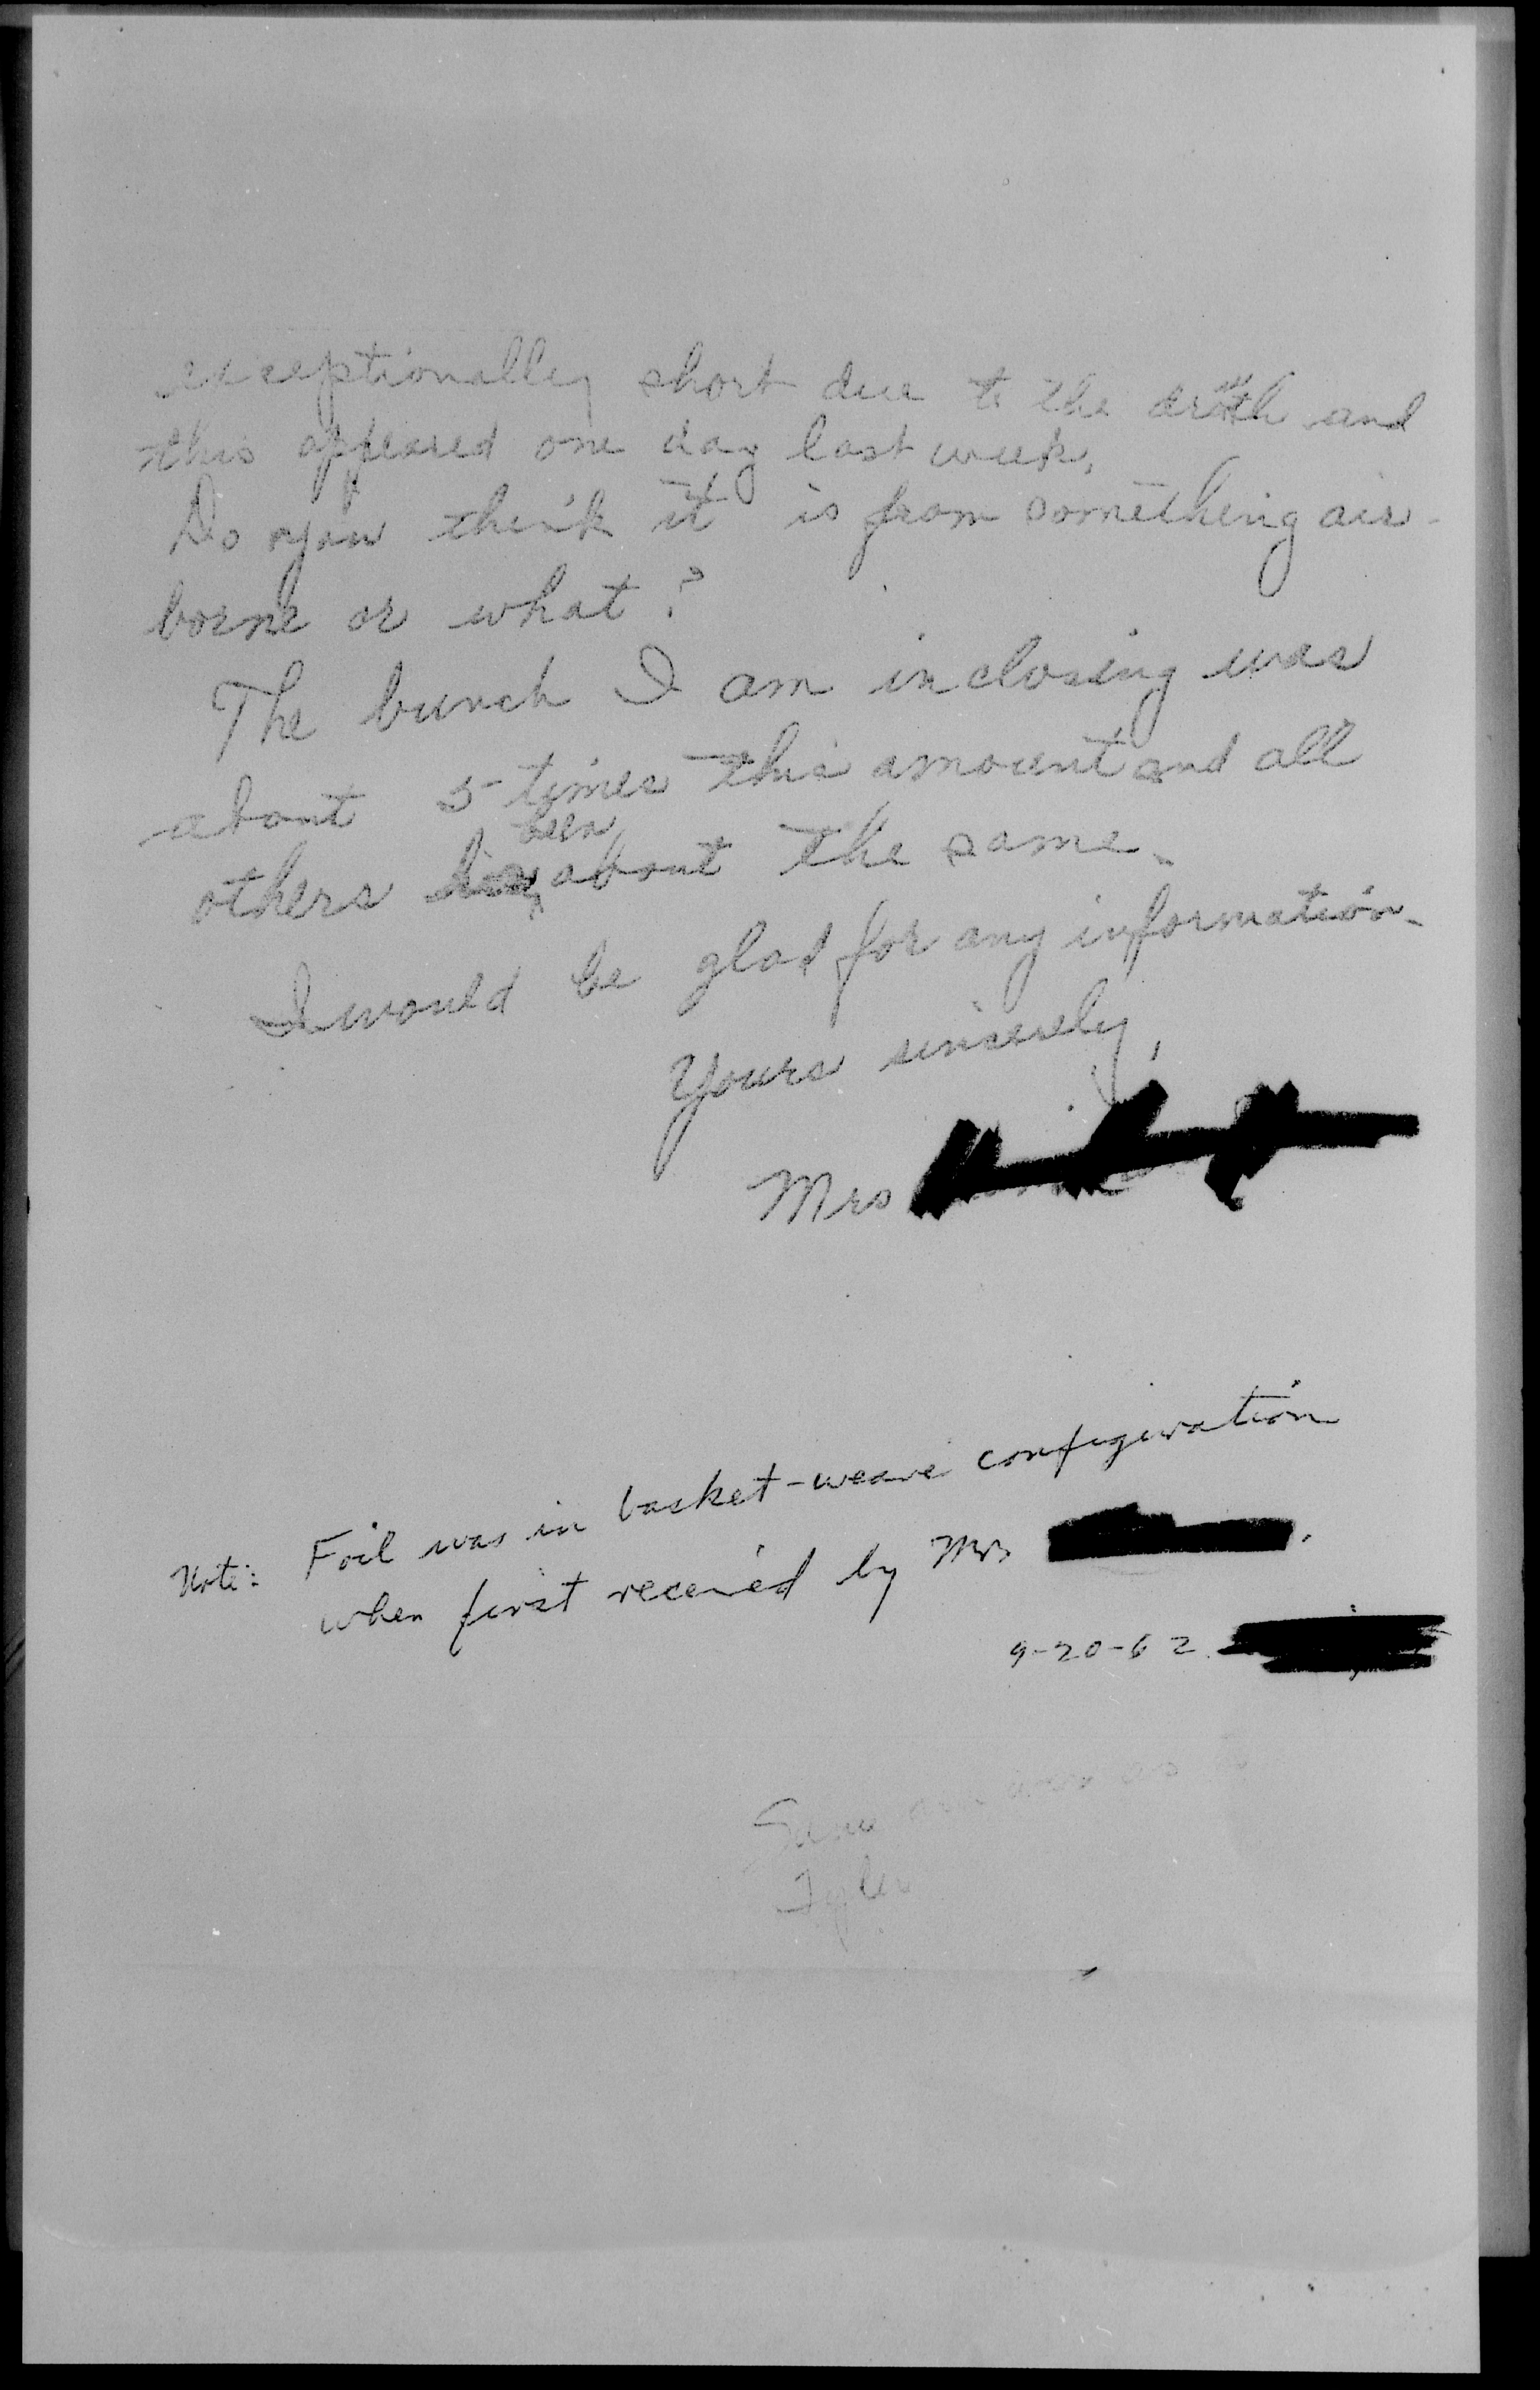 exceptionally short due to the droth and
this appeared one day last week.
Do you think it is from something air-
borne or what?
The bunch I am inclosing was
about 5 times this amount and all
others has been about the same.
I would be glad for any information.
Yours sincerely,
Mrs
Note: Foil was in basket-weave configuration
when first received by Mrs .
9-20-62
Tyler